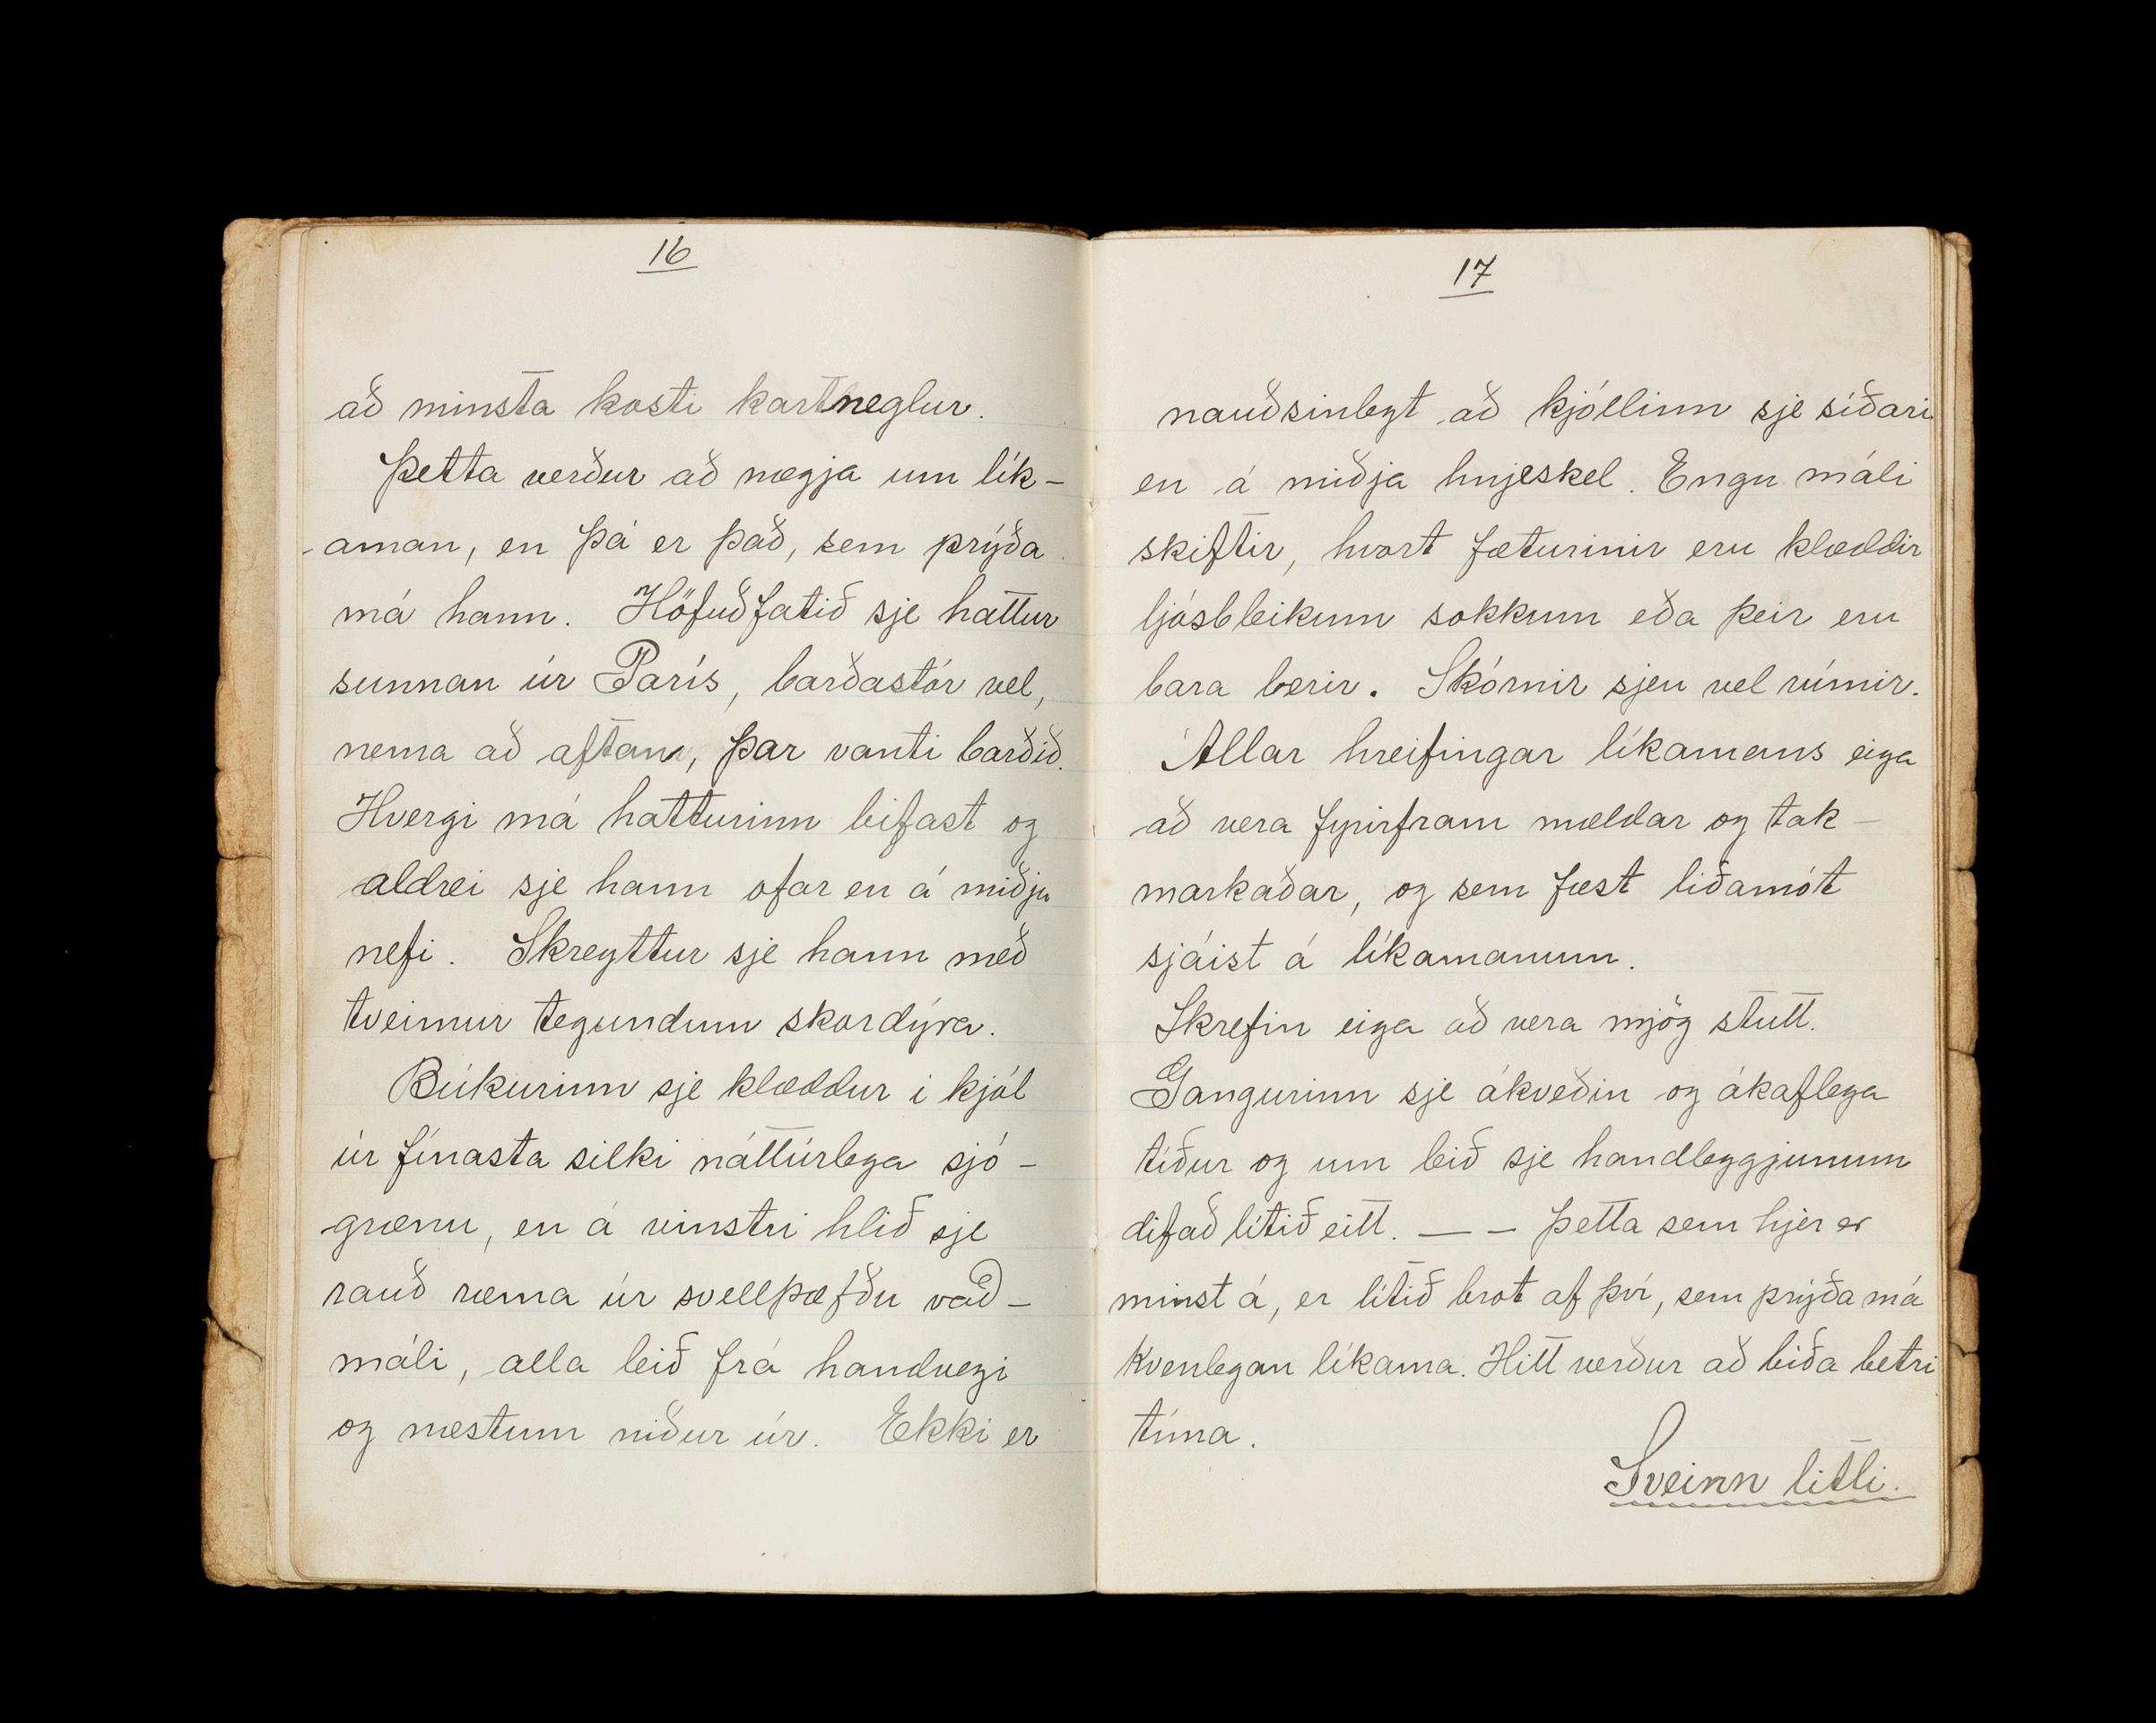 16
að minsta kosti kartneglur.
Þetta verður að nægja um lík-
-aman, en þá er það, sem prýða
má hann. Höfuðfatið sje hattur
sunnan úr París, barðastór vel,
nema að aftan, þar vanti barðið.
Hvergi má hatturinn bifast og
aldrei sje hann ofar en á miðju
nefi. Skreyttur sje hann með
tveimur tegundum skordýra.
Búkurinn sje klæddur i kjól
úr fínasta silki náttúrlega sjó-
grænu, en á vinstri hlið sje
rauð ræma úr svellþæfðu vað-
máli, alla leið frá handvegi
og næstum niður úr. Ekki er
17
nauðsinlegt að kjóllinn sje síðari
en á miðja hnjeskel. Engu máli
skiftir, hvort fæturinir eru klæddir
ljósbleikum sokkum eða þeir eru
bara berir. Skórnir sjeu vel rúmir.
Allar hreifingar líkamans eiga
að vera fyrirfram mældar og tak-
markaðar, og sem fæst liðamót
sjáist á líkamanum.
Skrefin eiga að vera mjög stutt.
Gangurinn sje ákveðin og ákaflega
tíður og um leið sje handleggjunum
difað lítið eitt. — — Þetta sem hjer er
minst á, er lítið brot af því, sem prýða má
kvenlegan líkama. Hitt verður að bíða betri
tíma.
Sveinn litli.